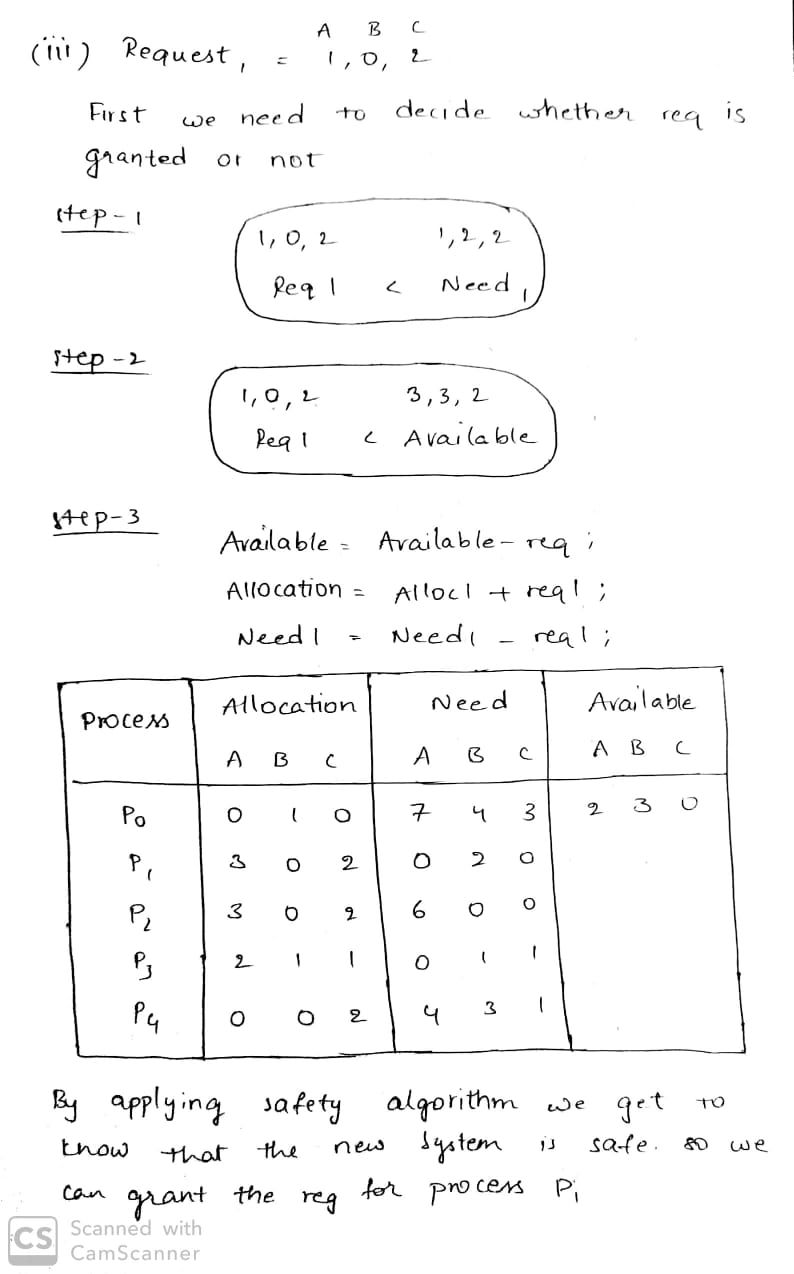 A B C
(iii) Request, = 1, 0, 2
First we need to decide whether req is
granted or not
step-1
1, 0, 2 1, 2, 2
Req 1 < Need,
step-2
1, 0, 2 3, 3, 2
Req 1 < Available
step-3
Available = Available - req ;
Allocation = Alloc1 + req1 ;
Need 1 = Need1 - req1 ;
Process Allocation Need Available
A B C A B C A B C
P0 0 1 0 7 4 3 2 3 0
P1 3 0 2 0 2 0
P2 3 0 2 6 0 0
P3 2 1 1 0 1 1
P4 0 0 2 4 3 1
By applying safety algorithm we get to
know that the new system is safe. so we
can grant the req for process P1
CS Scanned with
CamScanner